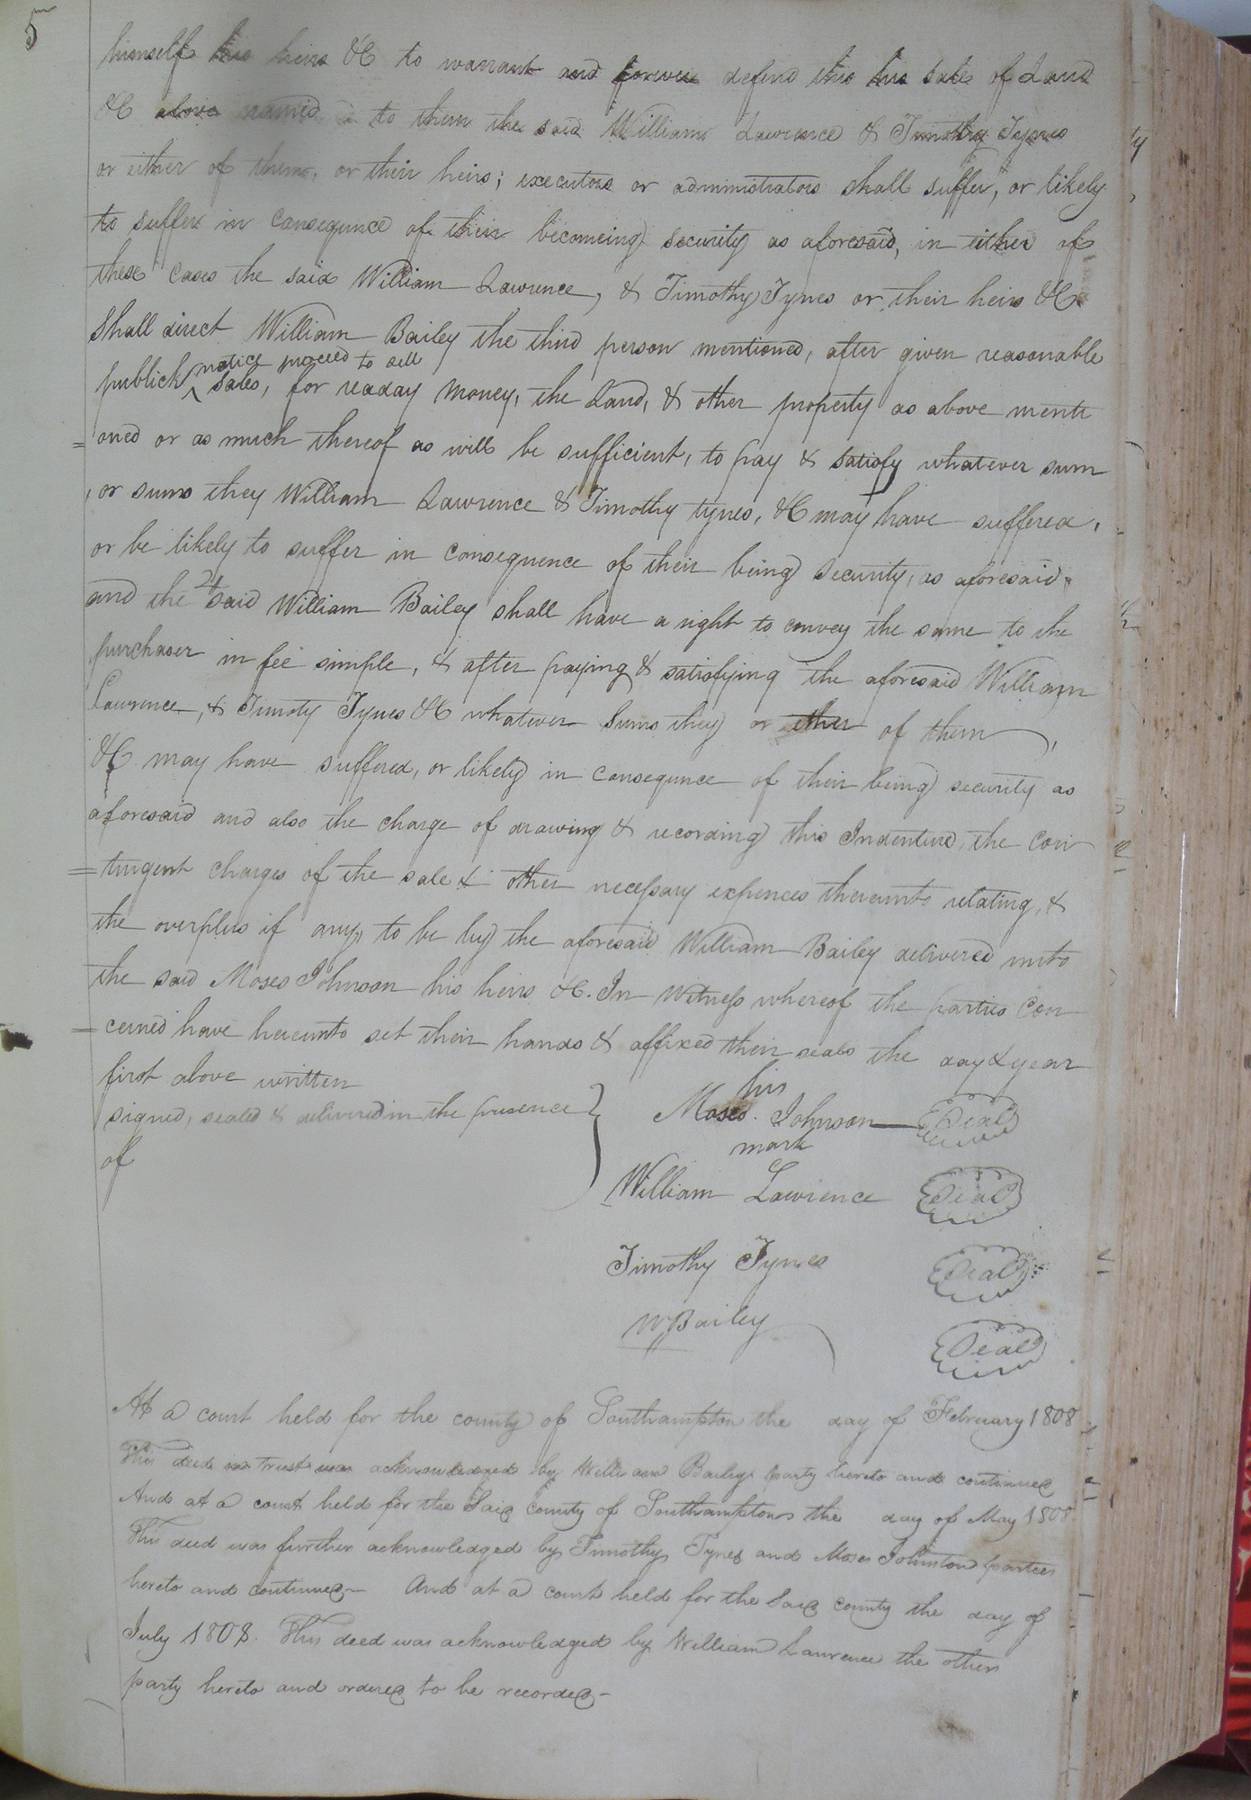 5
himself his heirs &C to warrant and forever defend this his sale of Land
&C above named to them the said William Lawrence & Timothy Tynes
or either of them, or their heirs; executors or administrators shall suffer, or likely
to suffer in consequnce of their becomeing security as aforesaid, in either of
these cases the said William Lawrence, & Timothy Tynes or their heirs &C
Shall direct William Bailey the third person mentioned, after given reasonable
notice proceed to sell
publick ^ sales, for readay money, the Land, & other property as above menti
= oned or as much thereof as will be sufficient, to pay & satisfy whatever sum
, or sums they William Lawrence & Timothy tynes, &C may have suffered,
or be likely to suffer in consequence of their being security, as aforesaid.
and the said William Bailey shall have a right to convey the same to the
purchaser in fee simple, & after paying & satisfying the aforesaid William
Lawrence, & Timoty Tynes &C whatever Sums they or either of them,
&C may have suffered, or likely in consequnce of their being security as
aforesaid and also the charge of drawing & recording this Indenture, the con
= tingent charges of the sale & other necessary expences thereunto relating, &
the overplus if any, to be by the aforesaid William Bailey delivered unto
the said Moses Johnson his heirs &C. In Witness whereof the parties Con
= cerned have hereunto set their hands & affixed their seals the day & year
first above written
signed, sealed & delivered in the presence }
of
his
Moses Johnson Seal
mark
William Lawrence Seal
Timothy Tynes Seal
W Bailey Seal
At a court held for the county of Southampton the day of February 1808
This deed in trust was acknowledged by William Bailey party hereto and continued
And at a court held for the Said County of Southampton the day of May 1808
This deed was further acknowledged by Timothy Tynes and Moses Johnston parties
hereto and continued - And at a court held for the Said County the day of
July 1808. This deed was acknowledged by William Lawrence the other
party hereto and ordered to be recorded -